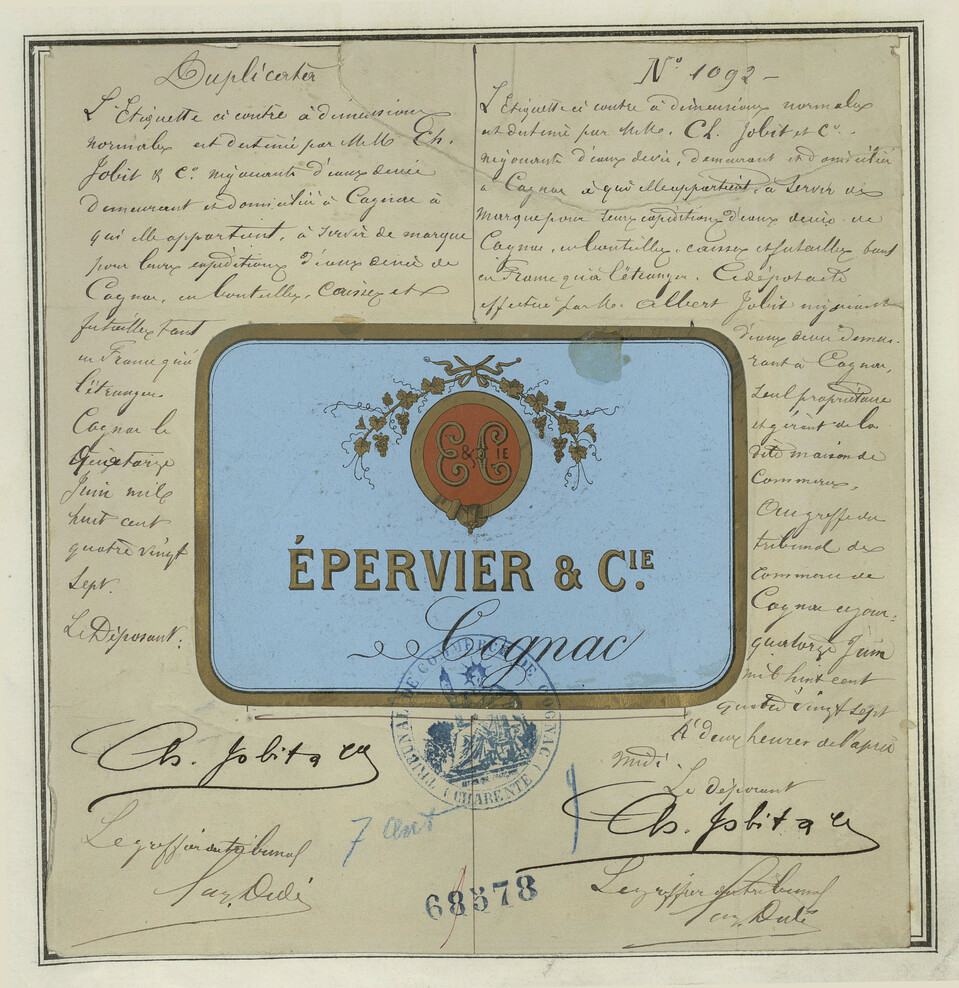 Duplicata
L'Etiquette ci contre à dimensions
normales est destinée par MM Ch.
Jobit & Co. négociants d'eaux devie
demeurant et domiciliés à Cognac à
qui elle appartient, à servir de marque
pour leurs expéditions d'eaux devie de
Cognac, en bouteilles, caisses et
futailles tant
en France qu'à
l'étranger
Cognac le
Quatorze
Juin mil
huit cent
quatre vingt
sept.
Le Déposant.
Ch. Jobit & Co
Le greffier du tribunal
Nº 1092 -
L'Etiquette ci contre à dimensions normales
est destinée par MM. Ch. Jobit et Co.
négociants d'eaux devie, demeurant et domiciliés
à Cognac à qui elle appartient, à servir de
marque pour leurs expéditions d'eaux devie de
Cognac, en bouteilles, caisses et futailles tant
en France qu'à l'étranger. Ce dépôt a été
effectué par M. Albert Jobit négociant
d'eaux devie demeu-
rant à Cognac,
seul propriétaire
et gérant de la
dite maison de
Commerce,
Au greffe du
tribunal de
Commerce de
Cognac ce jour.
quatorze Juin
mil huit cent
quatre vingt sept
à deux heures de l'après
midi.
Le déposant
Ch. Jobit & Co
Le greffier du tribunal
E & C IE
ÉPERVIER & CIE.
Cognac
TRIBUNAL DE COMMERCE DE COGNAC
(CHARENTE)
7
68578